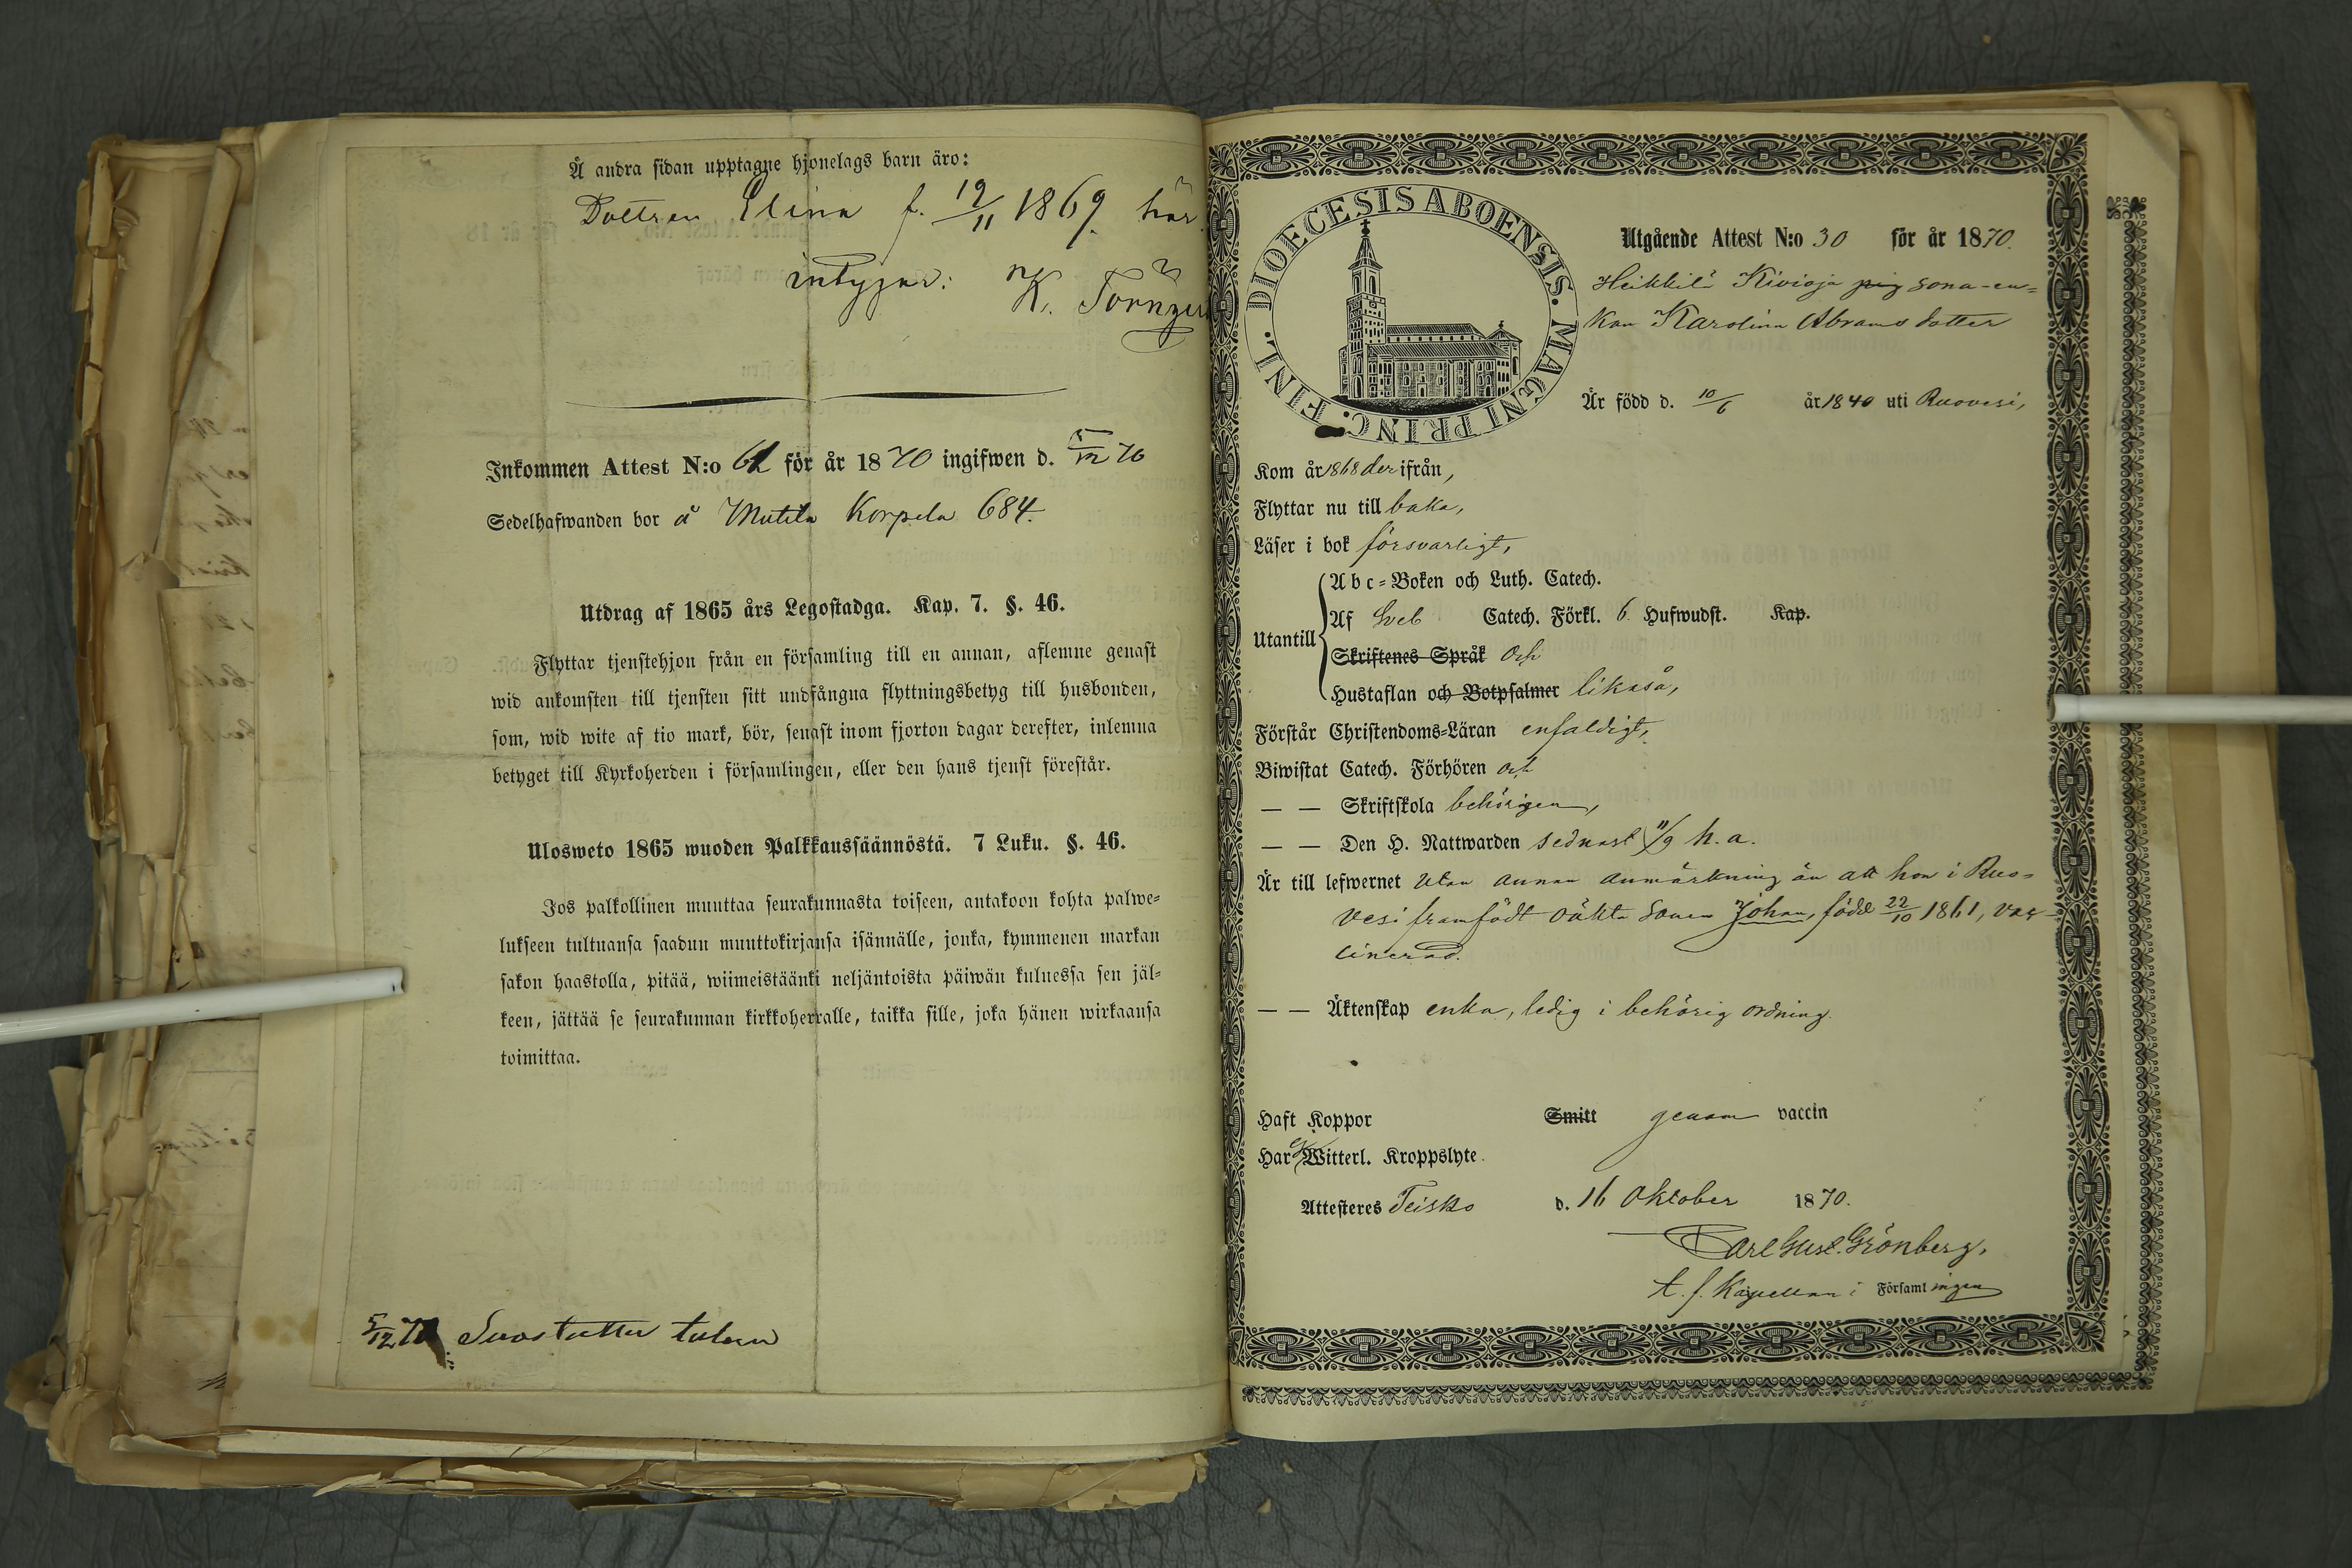 Å andra sidan upptagne hjonelags barn äro:
Dottren Elina f. 19/11 1869. här
intygar: K. Törnqu
Inkommen Attest N:o 62 för år 1870 ingifwen d. 5/12 70
Sedelhafwanden bor å Mutila Korpela 684.
Utdrag af 1865 års Legostadga. Kap. 7. §. 46.
Flyttar tjenstehjon från en församling till en annan, aflemne genast
wid ankomsten till tjensten sitt undfångna flyttningsbetyg till husbonden,
som, wid wite af tio mark, bör, senast inom fjorton dagar derefter, inlemna
betyget till Kyrkoherden i församlingen, eller den hans tjenst förestår.
Ulosweto 1865 wuoden Palkkaussäännöstä. 7 Luku. §. 46.
Jos palkollinen muuttaa seurakunnasta toiseen, antakoon kohta palwe-
lukseen tultuansa saadun muuttokirjansa isännälle, jonka, kymmenen markan
sakon haastolla, pitää, wiimeistäänki neljäntoista päiwän kuluessa sen jäl-
keen, jättää se seurakunnan kirkkoherralle, taikka sille, joka hänen wirkaansa
toimittaa.
5/12 70
DIOECESIS ABOENSIS. MAGNI PRINC. FINL.
Utgående Attest N:o 30 för år 1870.
Heikkilä Kivioja pig sona-en-
kan Karolina Abramsdotter
Är född d. 10/6 år 1840 uti Ruovesi,
Kom år 1868 derifrån,
Flyttar nu till baka,
Läser i bok försvarligt,
Utantill
Abc-Boken och Luth. Catech.
Af Sveb Catech. Förkl. 6 Hufwudst. Kap.
Skriftenes Språk och
Hustaflan och Botpsalmer likaså,
Förstår Christendoms-Läran enfaldigt,
Biwistat Catech. Förhören och
— — Skriftskola behörigen,
— — Den H. Nattwarden sednast 11/9 h. a.
Är till lefwernet utan annan anmärkning än att hon i Ruo-
vesi framfödt oäkta sonen Johan, född 22/10 1861, vac-
cinerad.
— — Äktenskap enka, ledig i behörig ordning.
Haft Koppor Smitt genom vaccin
Har Witterl. Kroppslyte.
Attesteres Teisko d. 16 Oktober 1870.
Carl Gust. Grönberg,
t. f. Kapellan i Församlingen